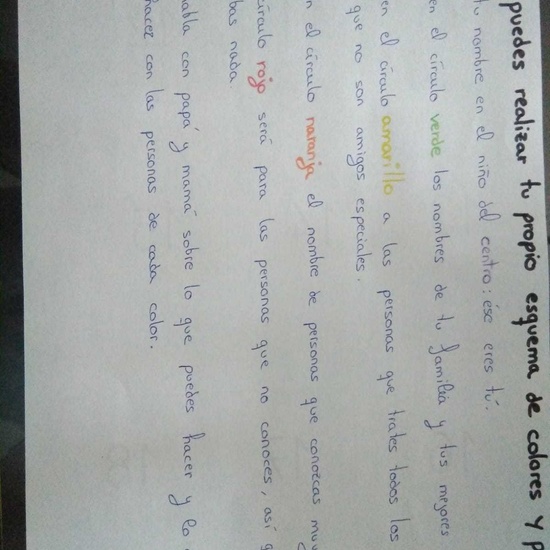 puedes realizar tu propio esquema de colores y p
tu nombre en el niño del centro: ése eres tú.
en el círculo verde los nombres de tu familia y tus mejores
en el círculo amarillo a las personas que trates todos los
que no son amigos especiales.
n el círculo naranja el nombre de personas que conozcas mu
círculo rojo será para las personas que no conoces, así q
bas nada.
abla con papá y mamá sobre lo que puedes hacer y lo
hacer con las personas de cada color.